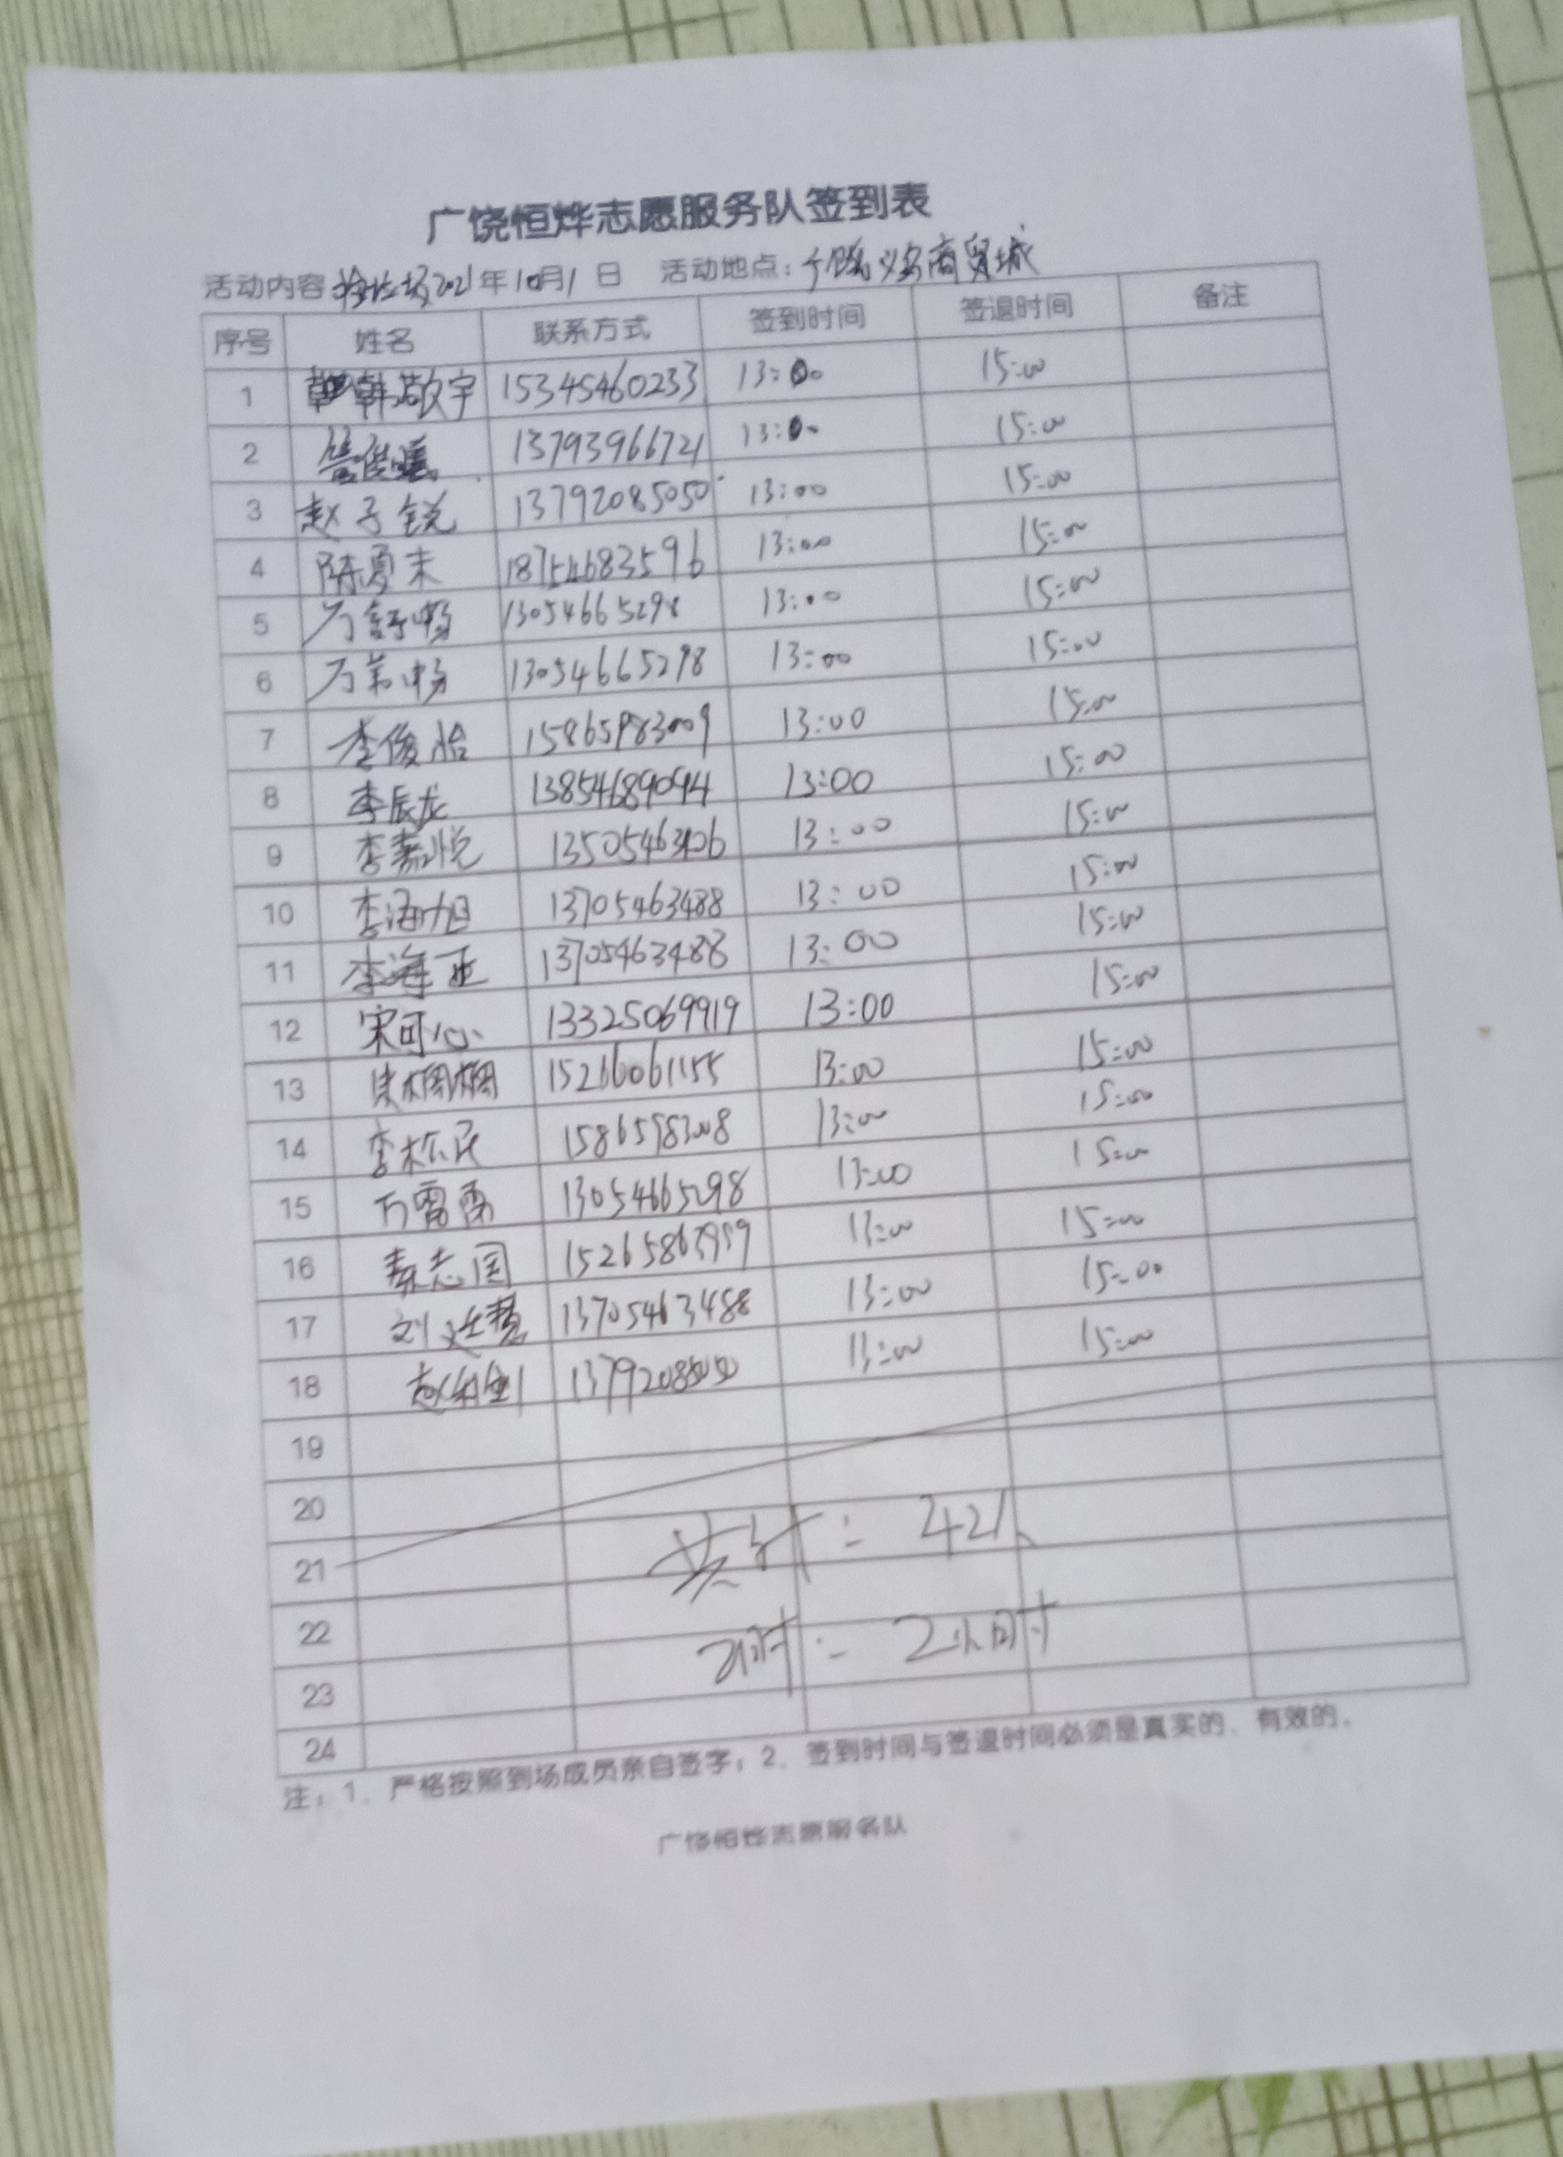 广饶恒烨志愿服务队签到表
活动内容 2021年10月1日 活动地点：广饶义乌商贸城
序号 姓名 联系方式 签到时间 签退时间 备注
1 韩敬宇 15345460233 13:00 15:00
2 13793966721 13:00 15:00
3 赵子锐 13792085050 13:00 15:00
4 陈夏末 18754683596 13:00 15:00
5 万舒畅 13054665298 13:00 15:00
6 万畅 13054665298 13:00 15:00
7 李俊怡 15865983009 13:00 15:00
8 李辰龙 13854689094 13:00 15:00
9 李嘉悦 13:00 15:00
10 李海旭 13705463488 13:00 15:00
11 李海亚 13705463488 13:00 15:00
12 宋可心 13325069919 13:00 15:00
13 15266061155 13:00 15:00
14 李栋民 15865983008 13:00 15:00
15 万雷雷 13054665298 13:00 15:00
16 秦志国 13:00 15:00
17 刘廷慧 13705463488 13:00 15:00
18 赵利剑 13792085050 13:00 15:00
19
20
21 共计：42人
22
23 2小时
24
注：1、严格按照到场成员亲自签字；2、签到时间与签退时间必须是真实的、有效的。
广饶恒烨志愿服务队